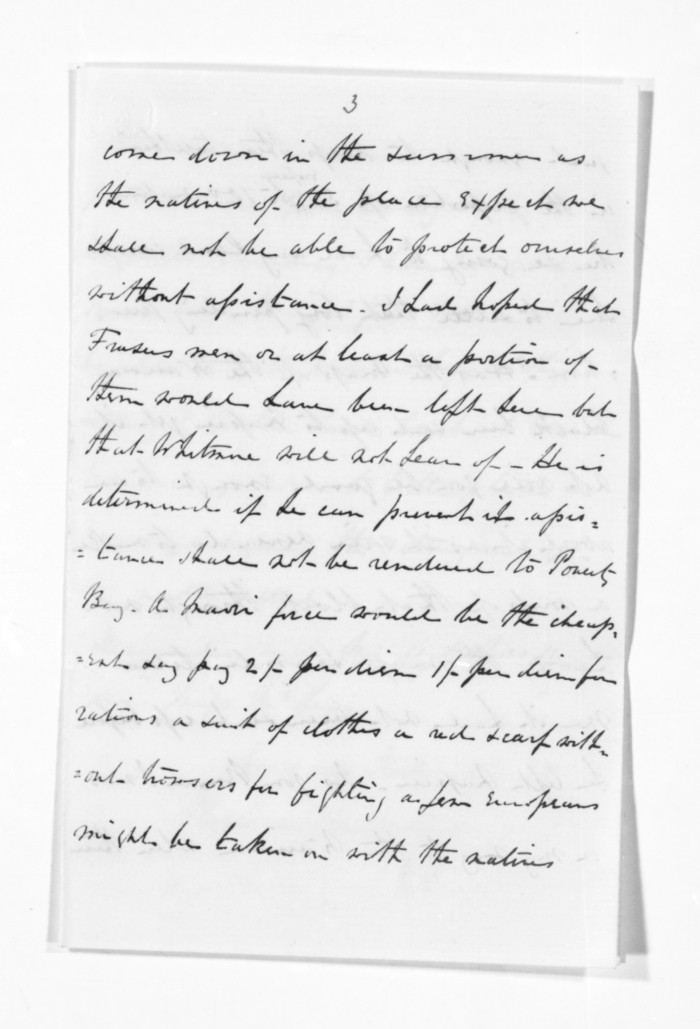 3
come down in the summer as
the natives of the place expect we
shall not be able to protect ourselves
without assistance. I had hoped that
Frasers men or at least a portion of
them would have been left here but
that Whitmore will not hear of - He is
determined if he can prevent it assis=
=tance shall not be rendered to Poverty
Bay. A Maori force would be the cheap=
=est say pay 2/- per diem 1/- per diem for
rations a suit of clothes a red scarf with=
=out trowsers for fighting a few Europeans
might be taken on with the natives